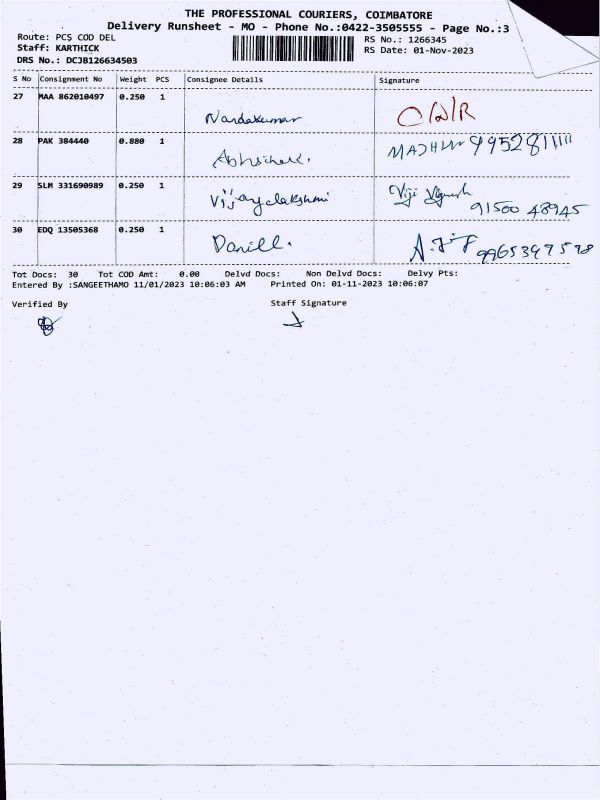 THE PROFESSIONAL COURIERS, COIMBATORE
Delivery Runsheet - MO - Phone No.:0422-3505555 - Page No.:3
Route: PCS COD DEL
RS No.: 1266345
Staff: KARTHICK
RS Date: 01-Nov-2023
DRS No.: DCJB126634503
S No Consignment No Weight PCS Consignee Details Signature
27 MAA 862010497 0.250 1 Nandakumar
28 PAK 384440 0.880 1 Abhishek.
29 SLM 331690989 0.250 1 Vijjayelakshmi Viji Vignesh
91500 48945
30 EDQ 13505368 0.250 1 Daniell.
Tot Docs: 30 Tot COD Amt: 0.00 Delvd Docs: Non Delvd Docs: Delvy Pts:
Entered By :SANGEETHAMO 11/01/2023 10:06:03 AM Printed On: 01-11-2023 10:06:07
Verified By Staff Signature